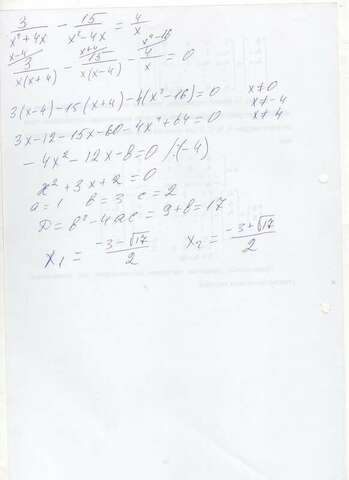 3/(x²+4x) - 15/(x²-4x) = 4/x
x-4 x+4 x²-16
3/(x(x+4)) - 15/(x(x-4)) - 4/x = 0
3(x-4)-15(x+4)-4(x²-16)=0 x≠0
x≠-4
3x-12-15x-60-4x²+64=0 x≠4
-4x²-12x-8=0 /:(-4)
x²+3x+2=0
a=1 b=3 c=2
D=b²-4ac=9+8=17
x₁ = (-3-√17)/2 x₂ = (-3+√17)/2